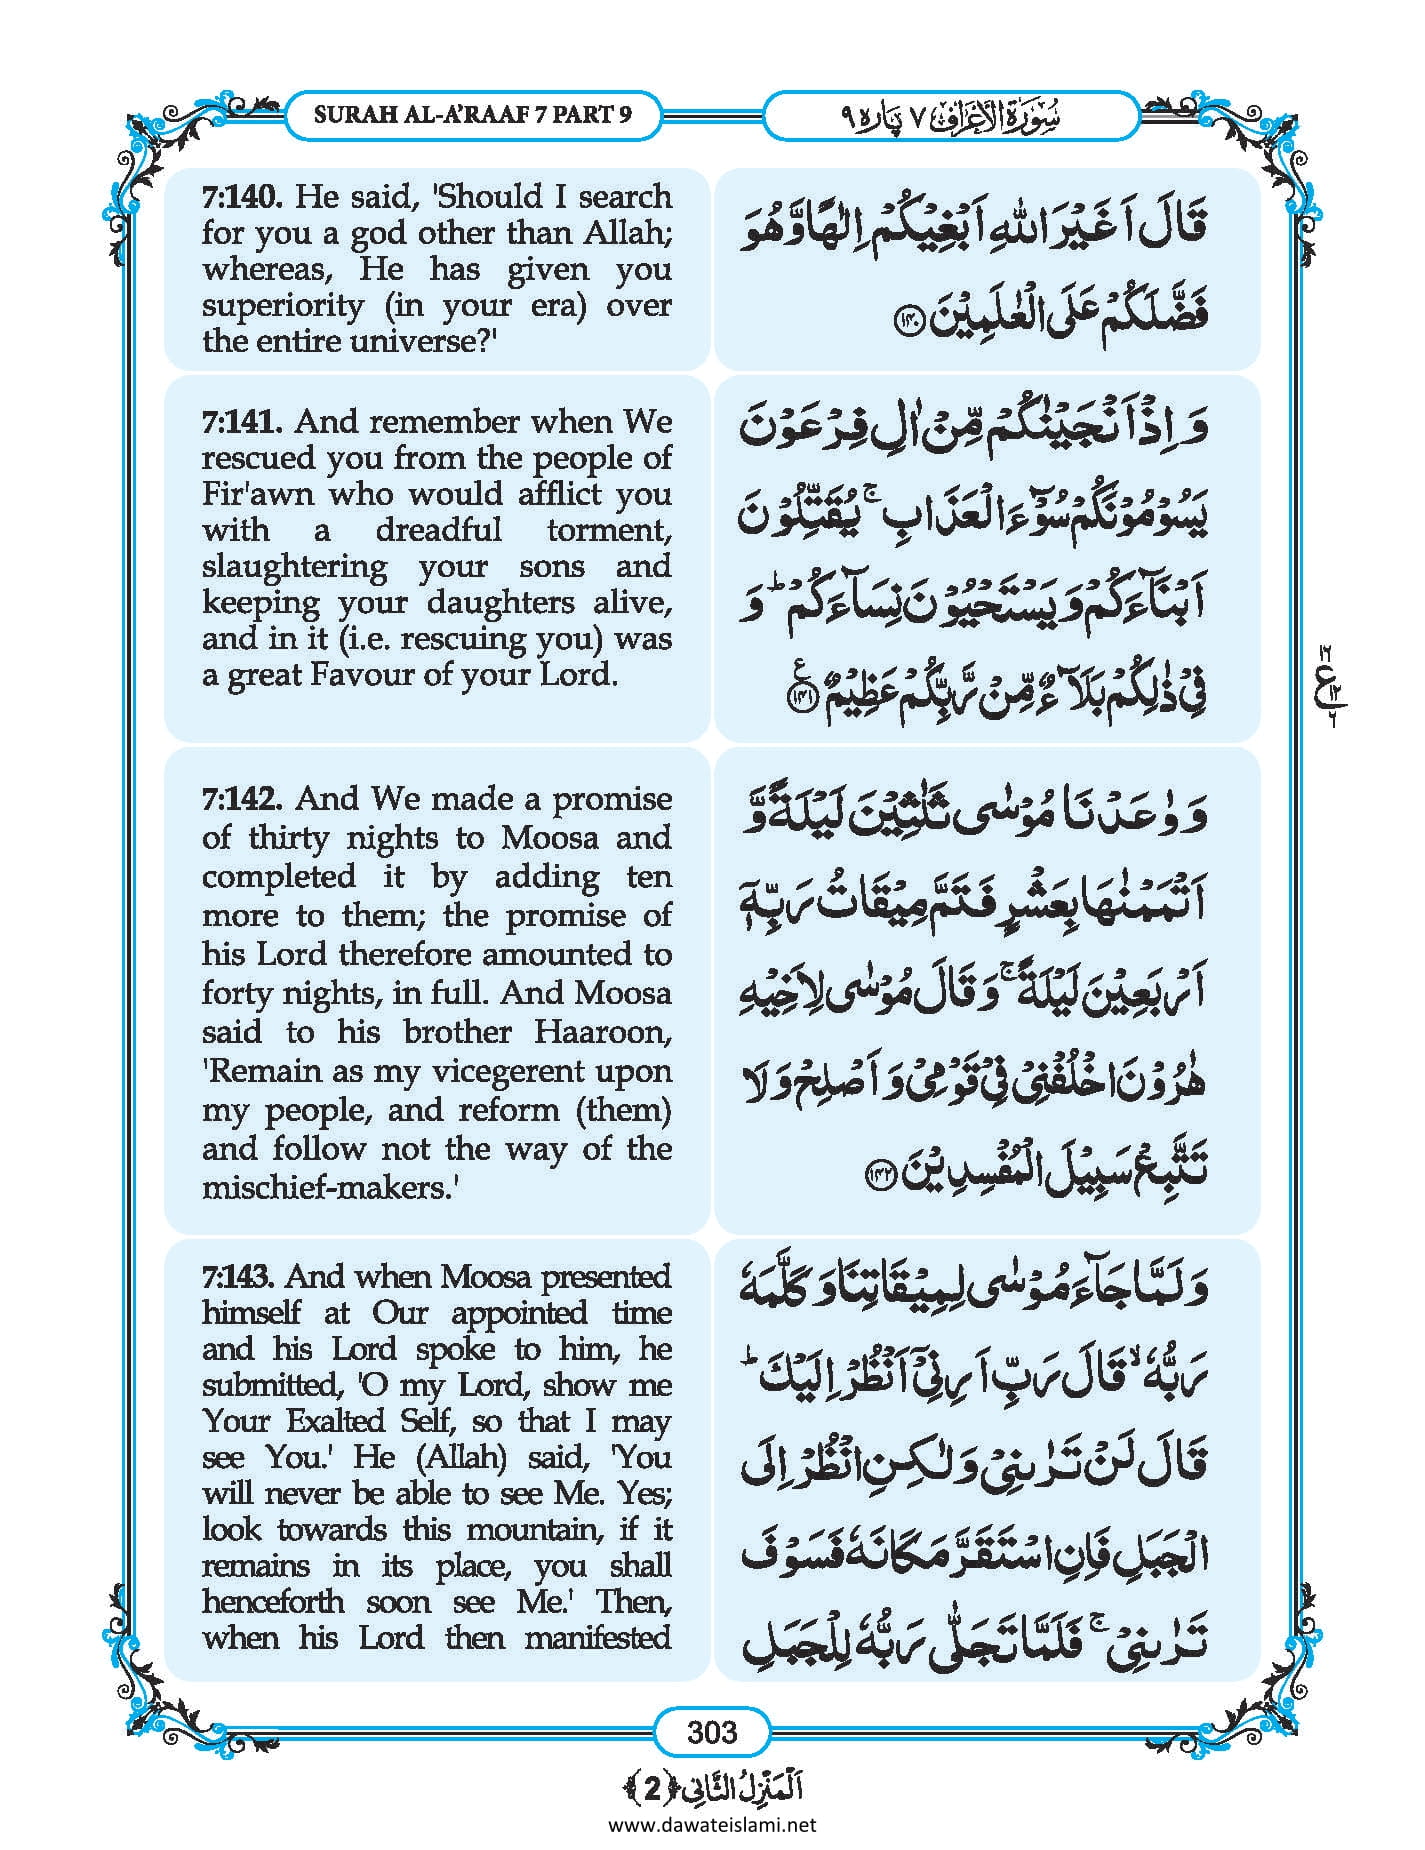 SURAH AL-A'RAAF 7 PART 9
سُوْرَةُ الْاَعْرَاف ٧ پاره ٩
7:140. He said, 'Should I search
for you a god other than Allah;
whereas, He has given you
superiority (in your era) over
the entire universe?'
قَالَ اَغَیْرَ اللّٰهِ اَبْغِیْكُمْ اِلٰهًا وَّهُوَ
فَضَّلَكُمْ عَلَى الْعٰلَمِیْنَ ﴿۱۴۰﴾
7:141. And remember when We
rescued you from the people of
Fir'awn who would afflict you
with a dreadful torment,
slaughtering your sons and
keeping your daughters alive,
and in it (i.e. rescuing you) was
a great Favour of your Lord.
وَ اِذْ اَنْجَیْنٰكُمْ مِّنْ اٰلِ فِرْعَوْنَ
یَسُوْمُوْنَكُمْ سُوْٓءَ الْعَذَابِ ۚ یُقَتِّلُوْنَ
اَبْنَآءَكُمْ وَ یَسْتَحْیُوْنَ نِسَآءَكُمْ ؕ وَ
فِیْ ذٰلِكُمْ بَلَآءٌ مِّنْ رَّبِّكُمْ عَظِیْمٌ ﴿۱۴۱﴾ع
۱۶
ع
۱۲
۶
7:142. And We made a promise
of thirty nights to Moosa and
completed it by adding ten
more to them; the promise of
his Lord therefore amounted to
forty nights, in full. And Moosa
said to his brother Haaroon,
'Remain as my vicegerent upon
my people, and reform (them)
and follow not the way of the
mischief-makers.'
وَ وٰعَدْنَا مُوْسٰى ثَلٰثِیْنَ لَیْلَةً وَّ
اَتْمَمْنٰهَا بِعَشْرٍ فَتَمَّ مِیْقَاتُ رَبِّهٖۤ
اَرْبَعِیْنَ لَیْلَةً ۚ وَ قَالَ مُوْسٰى لِاَخِیْهِ
هٰرُوْنَ اخْلُفْنِیْ فِیْ قَوْمِیْ وَ اَصْلِحْ وَ لَا
تَتَّبِعْ سَبِیْلَ الْمُفْسِدِیْنَ ﴿۱۴۲﴾
7:143. And when Moosa presented
himself at Our appointed time
and his Lord spoke to him, he
submitted, 'O my Lord, show me
Your Exalted Self, so that I may
see You.' He (Allah) said, 'You
will never be able to see Me. Yes;
look towards this mountain, if it
remains in its place, you shall
henceforth soon see Me.' Then,
when his Lord then manifested
وَ لَمَّا جَآءَ مُوْسٰى لِمِیْقَاتِنَا وَ كَلَّمَهٗ
رَبُّهٗ ۙ قَالَ رَبِّ اَرِنِیْۤ اَنْظُرْ اِلَیْكَ ؕ
قَالَ لَنْ تَرٰىنِیْ وَ لٰكِنِ انْظُرْ اِلَى
الْجَبَلِ فَاِنِ اسْتَقَرَّ مَكَانَهٗ فَسَوْفَ
تَرٰىنِیْ ۚ فَلَمَّا تَجَلّٰى رَبُّهٗ لِلْجَبَلِ
303
اَلْمَنْزِلُ الثَّانِی ﴿2﴾
www.dawateislami.net